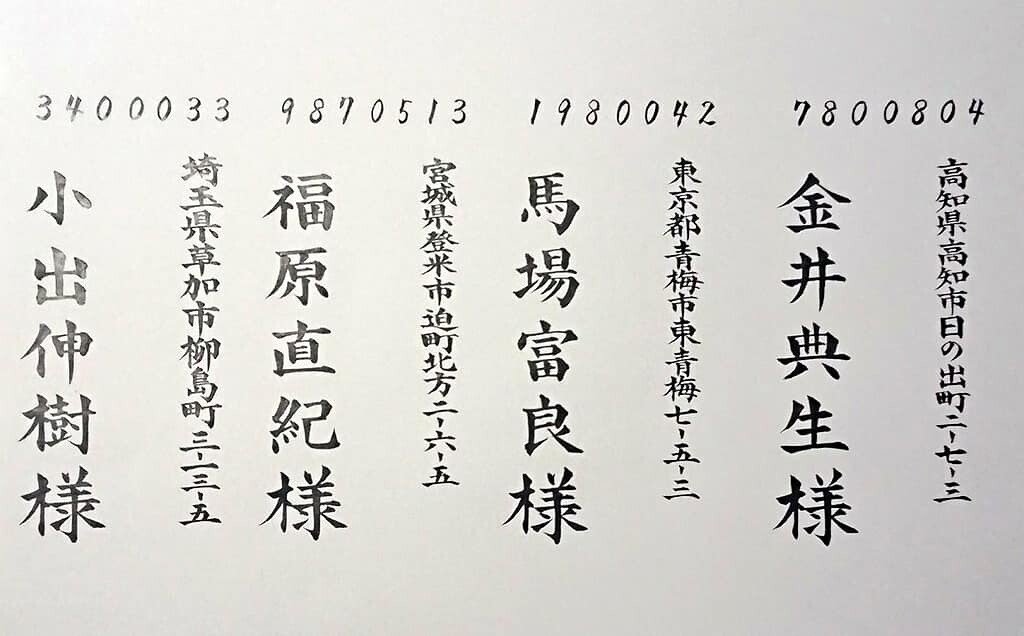 7800804
高知県高知市日の出町二-七-三
金井典生様
1980042
東京都青梅市東青梅七-五-三
馬場富良様
9870513
宮城県登米市迫町北方二-六-五
福原直紀様
3400033
埼玉県草加市柳島町三-一三-五
小出伸樹様